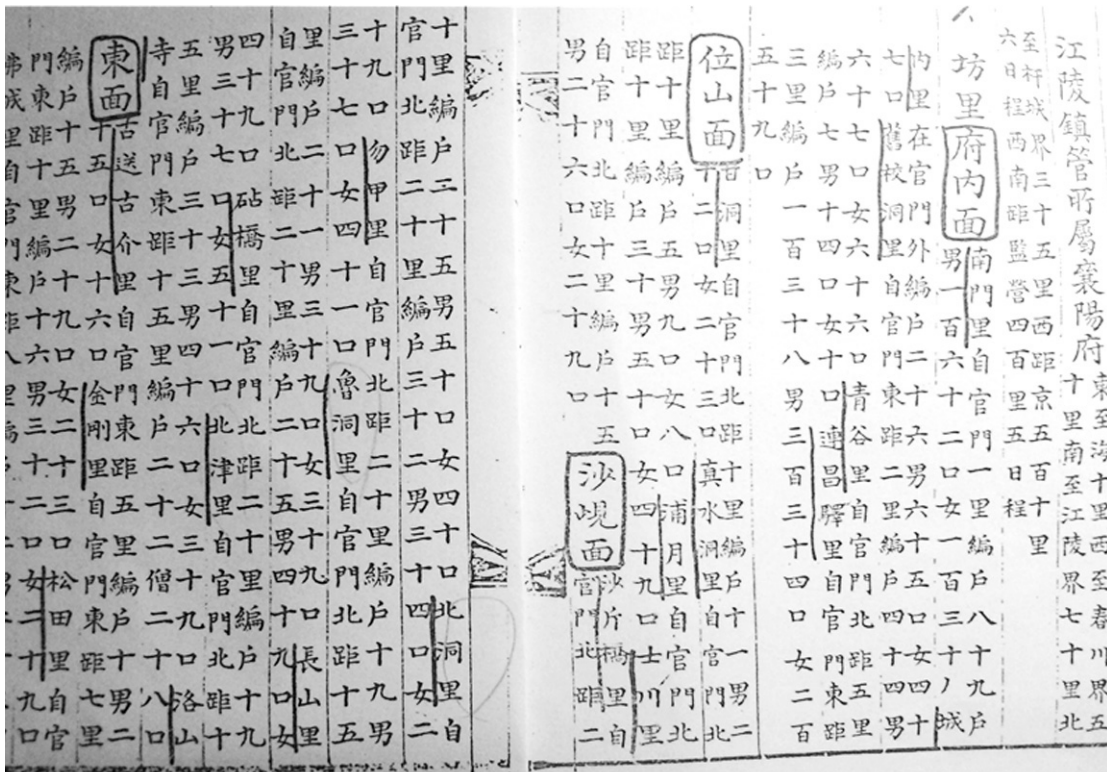 江陵鎮管所屬襄陽府 東至海十里西至春川界五
十里南至江陵界七十里北
至杆城界三十五里西距京五百十里
六日程西南距監營四百里五日程
坊里 府內面 南門里自官門一里編戶八十九戶
男一百六十二口女一百三十ノ城
內里在官門外編戶二十六男六十五口女四十
七口舊校洞里自官門東距二里編戶四十四男
六十七口女六十六口青谷里自官門北距五里
編戶七男十四口女十口連昌驛里自官門東距
三里編戶一百三十八男三百三十四口女二百
五十九口
位山面 甘洞里自官門北距十里編戶十一男二
十二口女二十三口真水洞里自官門北
距十里編戶五男九口女八口浦月里自官門北
距十里編戶三十男五十口女四十九口士川里
自官門北距十里編戶十五
男二十六口女二十九口
沙峴面 沙片橋里自
官門北距二
十里編戶二十五男五十口女四十口北洞里自
官門北距二十里編戶三十二男三十四口女二
十九口勿甲里自官門北距二十里編戶十九男
三十七口女四十一口魯洞里自官門北距十五
里編戶二十一男三十九口女三十九口長山里
自官門北距二十里編戶二十五男四十九口女
四十九口砧橋里自官門北距二十里編戶十九
男三十七口女五十一口北津里自官門北距十
五里編戶三十三男四十六口女三十九口洛山
寺自官門東距十五里編戶二十二僧二十八口
東面 古送古介里自官門東距五里編戶十男二
十五口女十六口金剛里自官門東距七里
編戶十五男二十九口女二十三口松田里自官
門東距十里編戶十六男三十二口女二十九口
成里自官門東距八里